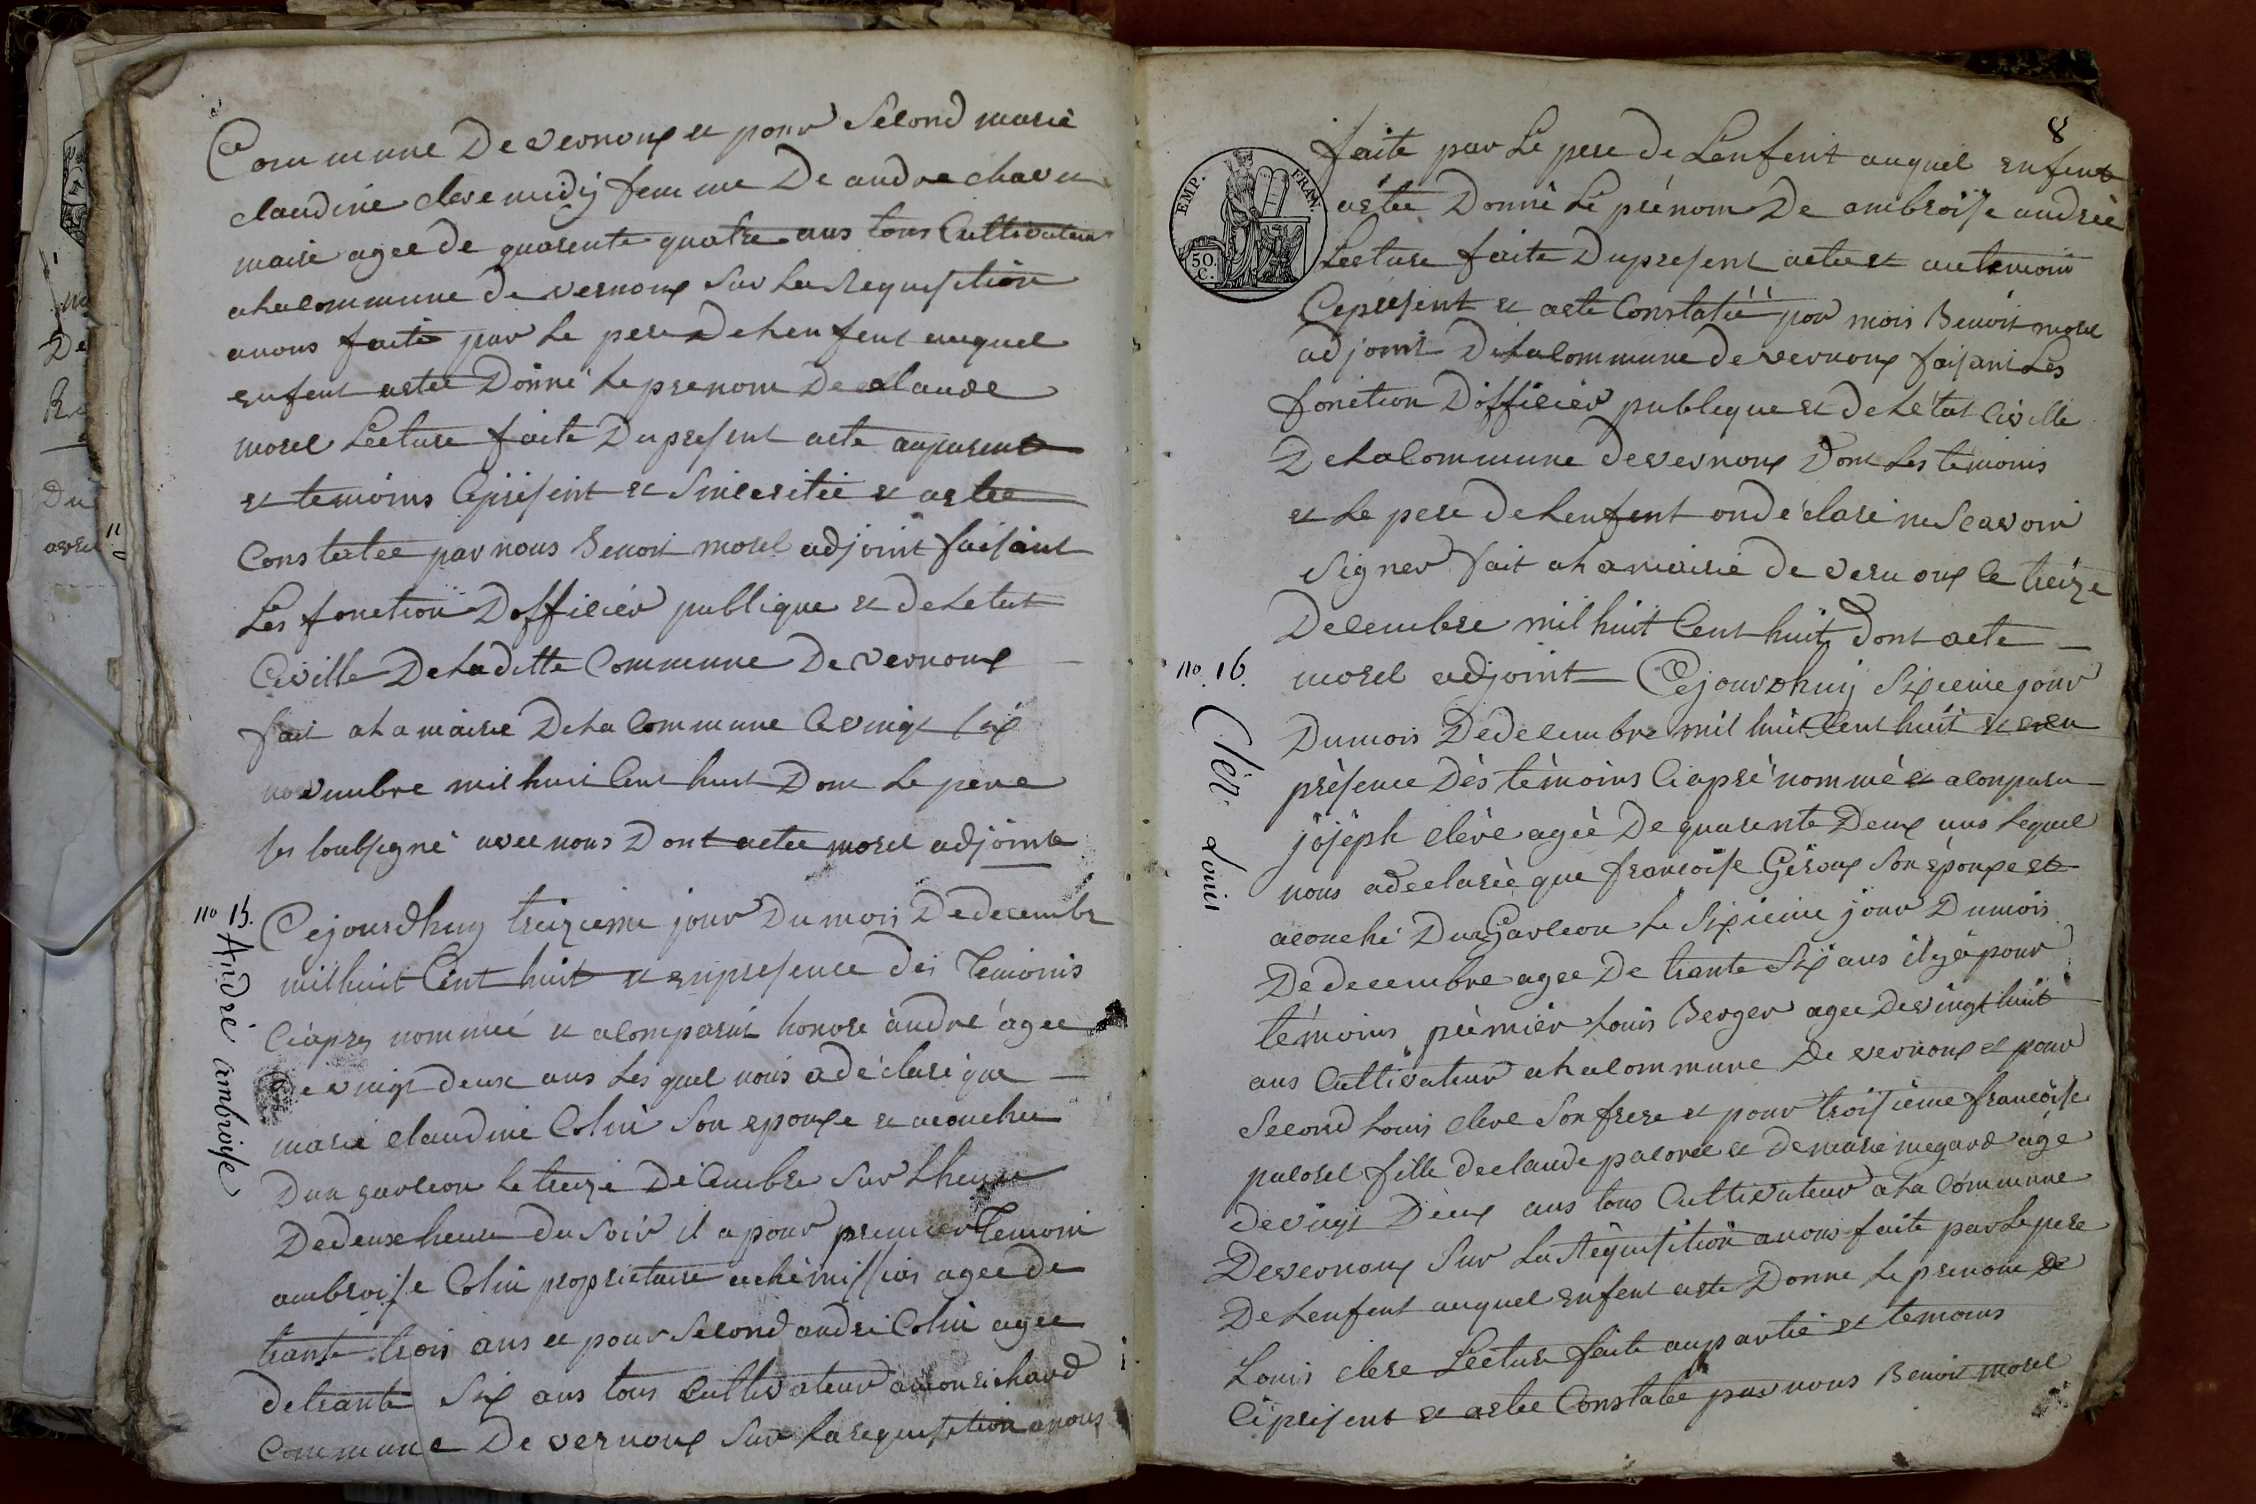 Commune De vernoux et pour Second marie
claudine clere midy femme De andre chavet
maire agee de quarente quatre ans tous Cultivateur
a la commune de vernoux Sur La Requisition
a nous faite par Le pere De Lenfent auquel
enfent astee Donné Le prenom De claude
morel Lecture faite Du present acte au parent
et temoins Ci present et Sinceritée et astee
Constatee par nous Benoit morel adjoint faisant
Les fonction Dofficier publique et de Letat
Civille De Laditte Commune De vernoux
fait a La mairie De La Commune Le vingt six
novembre mil huit Cent huit Dont Le pere
ses soubsigné avec nous Dont acte morel adjoint
no 15.
André ambroise
Cejourdhuy treizieme jour Du mois De decembre
mil huit Cent huit et en presence des Temoins
Ci apres nommée et a Comparut honore andré agee
De vingt deux ans Les quel nous a déclaré que
marie claudine Colin Son epouse et acouchee
Dun garcon Le treize Décembre Sur Lheure
De deux heure du Soir il a pour premier Temoin
ambroise Colin propriétaire a chemission agee de
trante trois ans et pour Second andré Colin agee
de trante Six ans tous Cultivateur a mourichard
Commune De vernoux Sur La requisition a nous
8
EMP. FRAN.
50. C.
faite par Le pere de Lenfent auquel enfent
astee Donné Le prénom De ambroise andrée
Lecture faite Du present acte et au temoin
Ce present et aste Constatéé par mois Benoit morel
adjoint De La Commune de vernoux faisant Les
fonction Dofficier publique et de Létat Civille
De La Commune de vernoux Dont Les temoins
et Le pere de Lenfent on déclaré ne Scavoir
Signer fait a La mairie de vernoux le treize
Decembre mil huit Cent huit dont acte
no. 16.
Clér Louis
morel adjoint Cejourdhuy Sixieme jour
Du mois De decembre mil huit Cent huit et en
présence Dés témoins Ci apré nommé et a Comparu
joséph clére ageé De quarente Deux ans Lequel
nous a declarée que francoise Giroux Son épouse et
acouché Dun Garcon Le Sixieme jour Du mois
De decembre agee De trante Six ans il y à pour
témoins prémiér Louis Berger agee De vingt huit
ans Cultivateur a La Commune De vernoux et pour
Second Louis clere Son frere et pour troisiéme francoise
pacorel fille de claude pacorel et De marie megard agé
de vingt Deux ans tous Cultivateur a La Commune
De vernoux Sur La Réquisition a nous faite par Le pere
De Lenfent auquel enfent aste Donne Le prenom De
Louis clere Lecture faite au partie et temoins
Ci présent et astee Constatée par nous Benoit morel